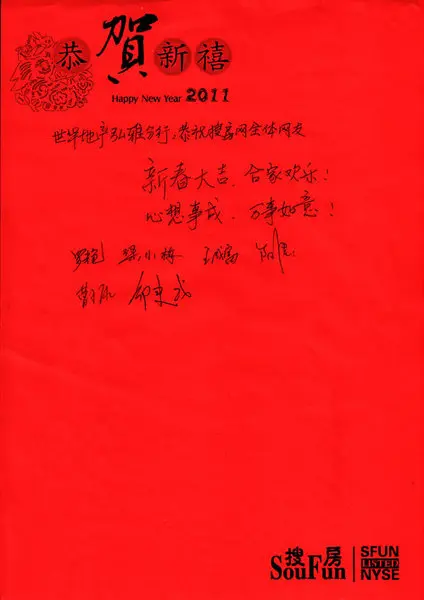 恭賀新禧
Happy New Year 2011
世华地产弘雅分行，恭祝搜房网全体网友
新春大吉、合家欢乐！
心想事成、万事如意！
搜房
SouFun
SFUN
LISTED
NYSE